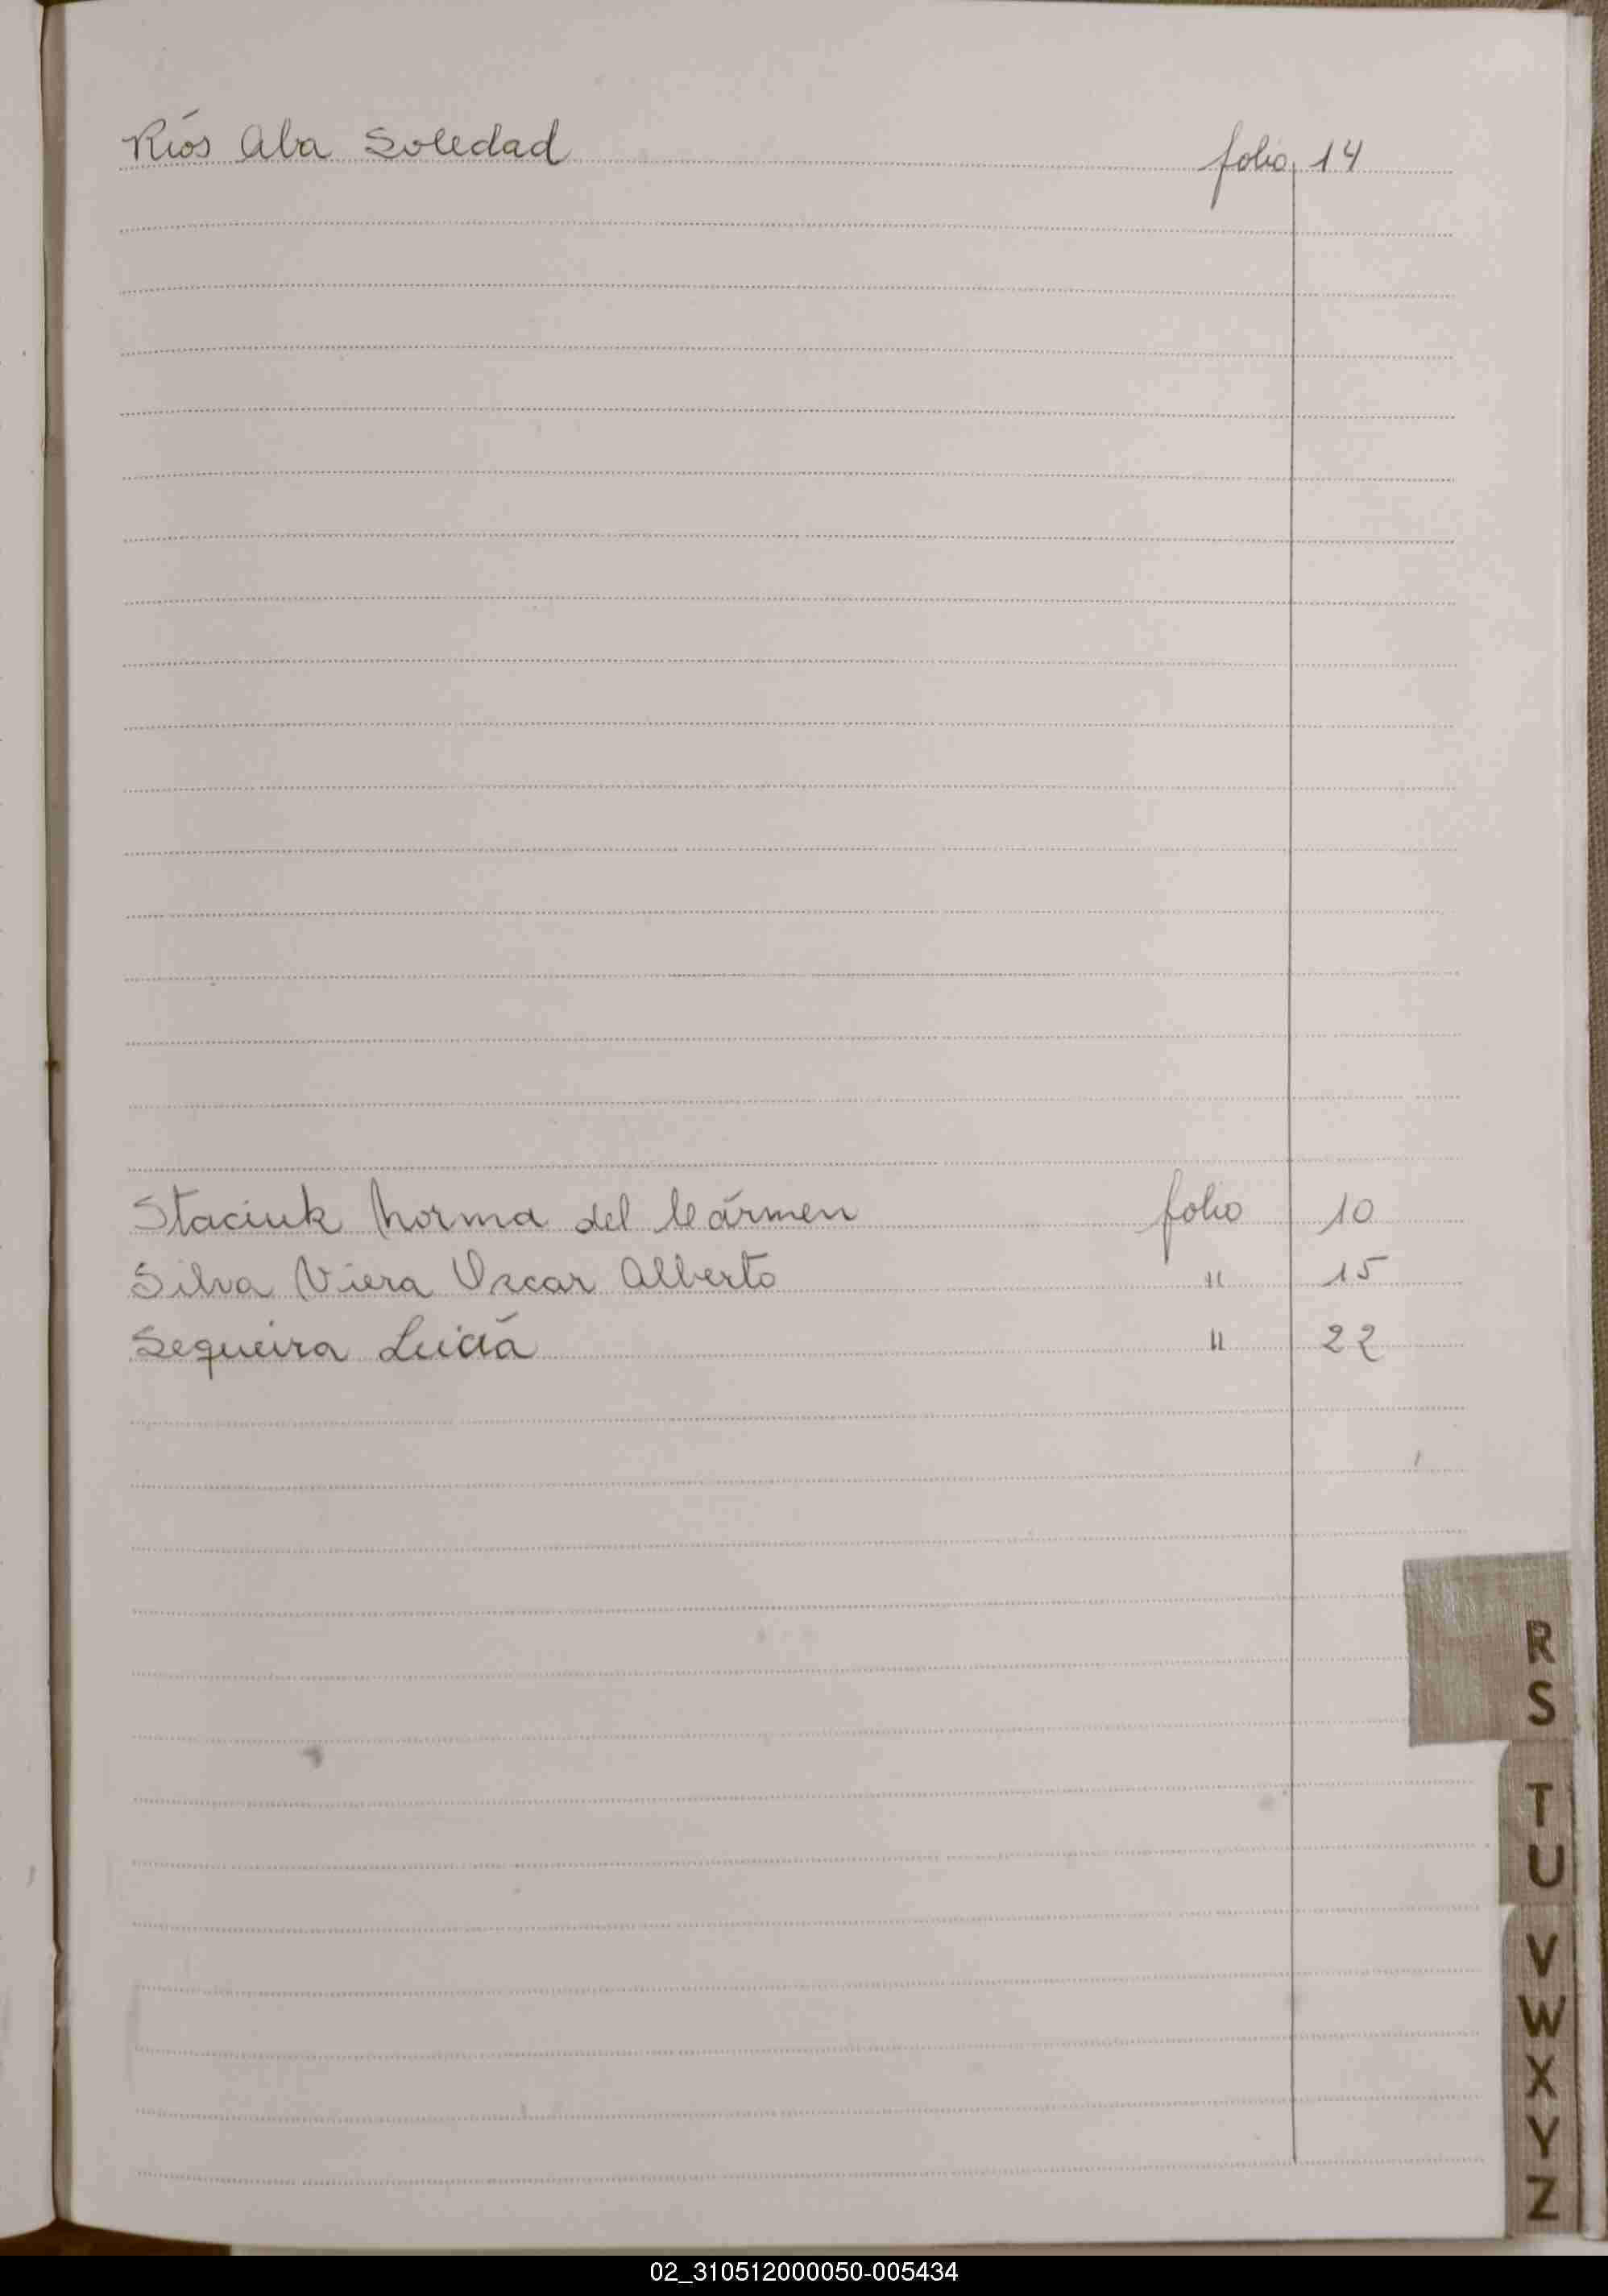 Ríos Alva Soledad folio 14
Staciuk Norma del Cármen folio 10
Silva Viera Oscar Alberto " 15
Sequeira Lucía " 22
R
S
T
U
V
W
X
Y
Z
02_310512000050-005434